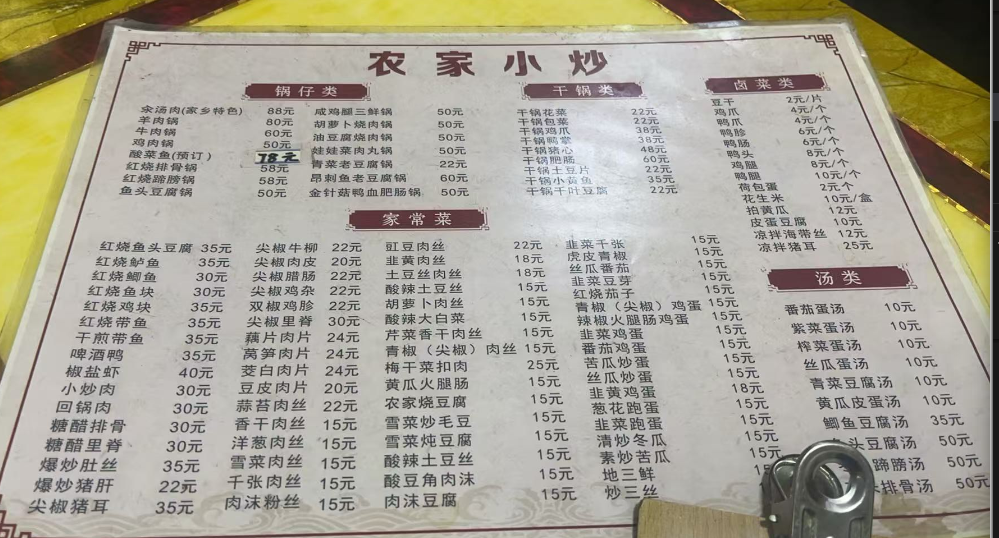 农家小炒
锅仔类
汆汤肉(家乡特色) 88元
羊肉锅 80元
牛肉锅 60元
鸡肉锅 50元
酸菜鱼(预订) 78元
红烧排骨锅 58元
红烧蹄膀锅 58元
鱼头豆腐锅 50元
咸鸡腿三鲜锅 50元
胡萝卜烧肉锅 50元
油豆腐烧肉锅 50元
娃娃菜肉丸锅 50元
青菜老豆腐锅 22元
昂刺鱼老豆腐锅 60元
金针菇鸭血肥肠锅 50元
干锅类
干锅花菜 22元
干锅包菜 22元
干锅鸡爪 38元
干锅鸭掌 38元
干锅猪心 48元
干锅肥肠 60元
干锅土豆片 22元
干锅小黄鱼 35元
干锅千叶豆腐 22元
卤菜类
豆干 2元/片
鸡爪 4元/个
鸭爪 4元/个
鸭胗 6元/个
鸭肠 6元/个
鸭头 8元/个
鸡腿 8元/个
鸭腿 10元/个
荷包蛋 2元个
花生米 10元/盒
拍黄瓜 12元
皮蛋豆腐 10元
凉拌海带丝 12元
凉拌猪耳 25元
家常菜
红烧鱼头豆腐 35元
红烧鲈鱼 35元
红烧鲫鱼 30元
红烧鱼块 30元
红烧鸡块 35元
红烧带鱼 35元
干煎带鱼 35元
啤酒鸭 35元
椒盐虾 40元
小炒肉 30元
回锅肉 30元
糖醋排骨 30元
糖醋里脊 30元
爆炒肚丝 35元
爆炒猪肝 22元
尖椒猪耳 35元
尖椒牛柳 22元
尖椒肉皮 20元
尖椒腊肠 22元
尖椒鸡杂 22元
双椒鸡胗 22元
尖椒里脊 30元
藕片肉片 24元
莴笋肉片 24元
茭白肉片 24元
豆皮肉片 20元
蒜苔肉丝 22元
香干肉丝 15元
洋葱肉丝 15元
雪菜肉丝 15元
千张肉丝 15元
肉沫粉丝 15元
豇豆肉丝 22元
韭黄肉丝 18元
土豆丝肉丝 18元
酸辣土豆丝 15元
胡萝卜肉丝 15元
酸辣大白菜 15元
芹菜香干肉丝 15元
青椒（尖椒）肉丝 15元
梅干菜扣肉 25元
黄瓜火腿肠 15元
农家烧豆腐 15元
雪菜炒毛豆 15元
雪菜炖豆腐 15元
酸辣土豆丝 15元
酸豆角肉沫 15元
肉沫豆腐 15元
韭菜千张 15元
虎皮青椒 15元
丝瓜番茄 15元
韭菜豆芽 15元
红烧茄子 15元
青椒（尖椒）鸡蛋 15元
辣椒火腿肠鸡蛋 15元
韭菜鸡蛋 15元
番茄鸡蛋 15元
苦瓜炒蛋 15元
丝瓜炒蛋 15元
韭黄鸡蛋 18元
葱花跑蛋 15元
韭菜跑蛋 15元
清炒冬瓜 15元
素炒苦瓜 15元
地三鲜
炒三丝
汤类
番茄蛋汤 10元
紫菜蛋汤 10元
榨菜蛋汤 10元
丝瓜蛋汤 10元
青菜豆腐汤 10元
黄瓜皮蛋汤 10元
鲫鱼豆腐汤 35元
头豆腐汤 50元
蹄膀汤 50元
排骨汤 50元